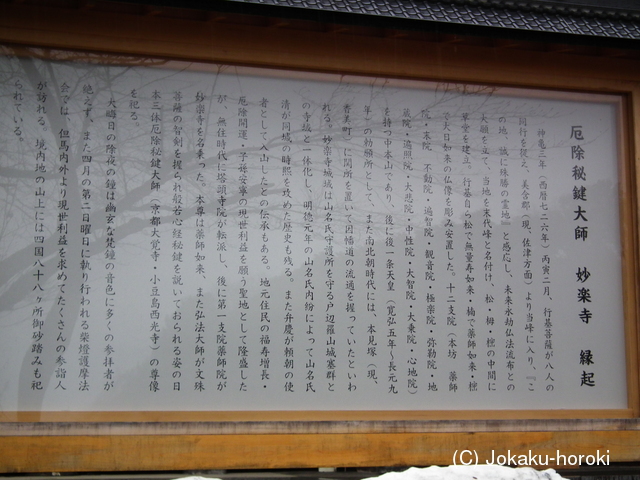 厄除秘鍵大師　妙楽寺　縁起
神亀三年（西暦七二六年）丙寅二月、行基菩薩が八人の
同行を従え、美含郡（現、佐津方面）より当峰に入り、『こ
の地、誠に殊勝の霊地』と感応し、未来永劫仏法流布との
大願を立て、当地を末代峰と名付け、松・栂・樒の中間に
草堂を建立。行基自ら松で無量寿如来・楠で薬師如来・樒
で大日如来の仏像を彫み安置した。十二支院（本坊　薬師
院・本院　不動院・遍智院・観音院・極楽院・弥勒院・地
蔵院・遍照院・大悲院・中性院・大智院・大乗院・心地院）
を持つ中本山であり、後に後一条天皇（寛弘五年～長元九
年）の勅願所として、また南北朝時代には、本見塚（現、
香美町）に関所を置いて因幡道の流通を握っていたといわ
れる。妙楽寺城域は山名氏守護所を守る戸辺羅山城塞群と
の寺城と一体化し、明徳元年の山名氏内紛によって山名氏
清が同城の時熙を攻めた歴史も残る。また弁慶が頼朝の使
者として入山したとの伝承もある。地元住民の福寿増長・
厄除開運・子母安寧の現世利益を願う聖地として隆盛した
が、無住時代に塔頭寺院が転派し、後に第一支院薬師院が
妙楽寺を名乗った。本尊は薬師如来、また弘法大師が文殊
菩薩の智剣を握られ般若心経秘鍵を説いておられる姿の日
本三体厄除秘鍵大師（京都大覚寺・小豆島西光寺）の尊像
を祀る。
大晦日の除夜の鐘は幽玄な梵鐘の音色に多くの参拝者が
絶えず、また四月の第二日曜日に執り行われる柴燈護摩法
会では、但馬内外より現世利益を求めてたくさんの参詣人
が訪れる。境内地の山上には四国八十八ヶ所御砂踏みも祀
られている。
(C) Jokaku-horoki